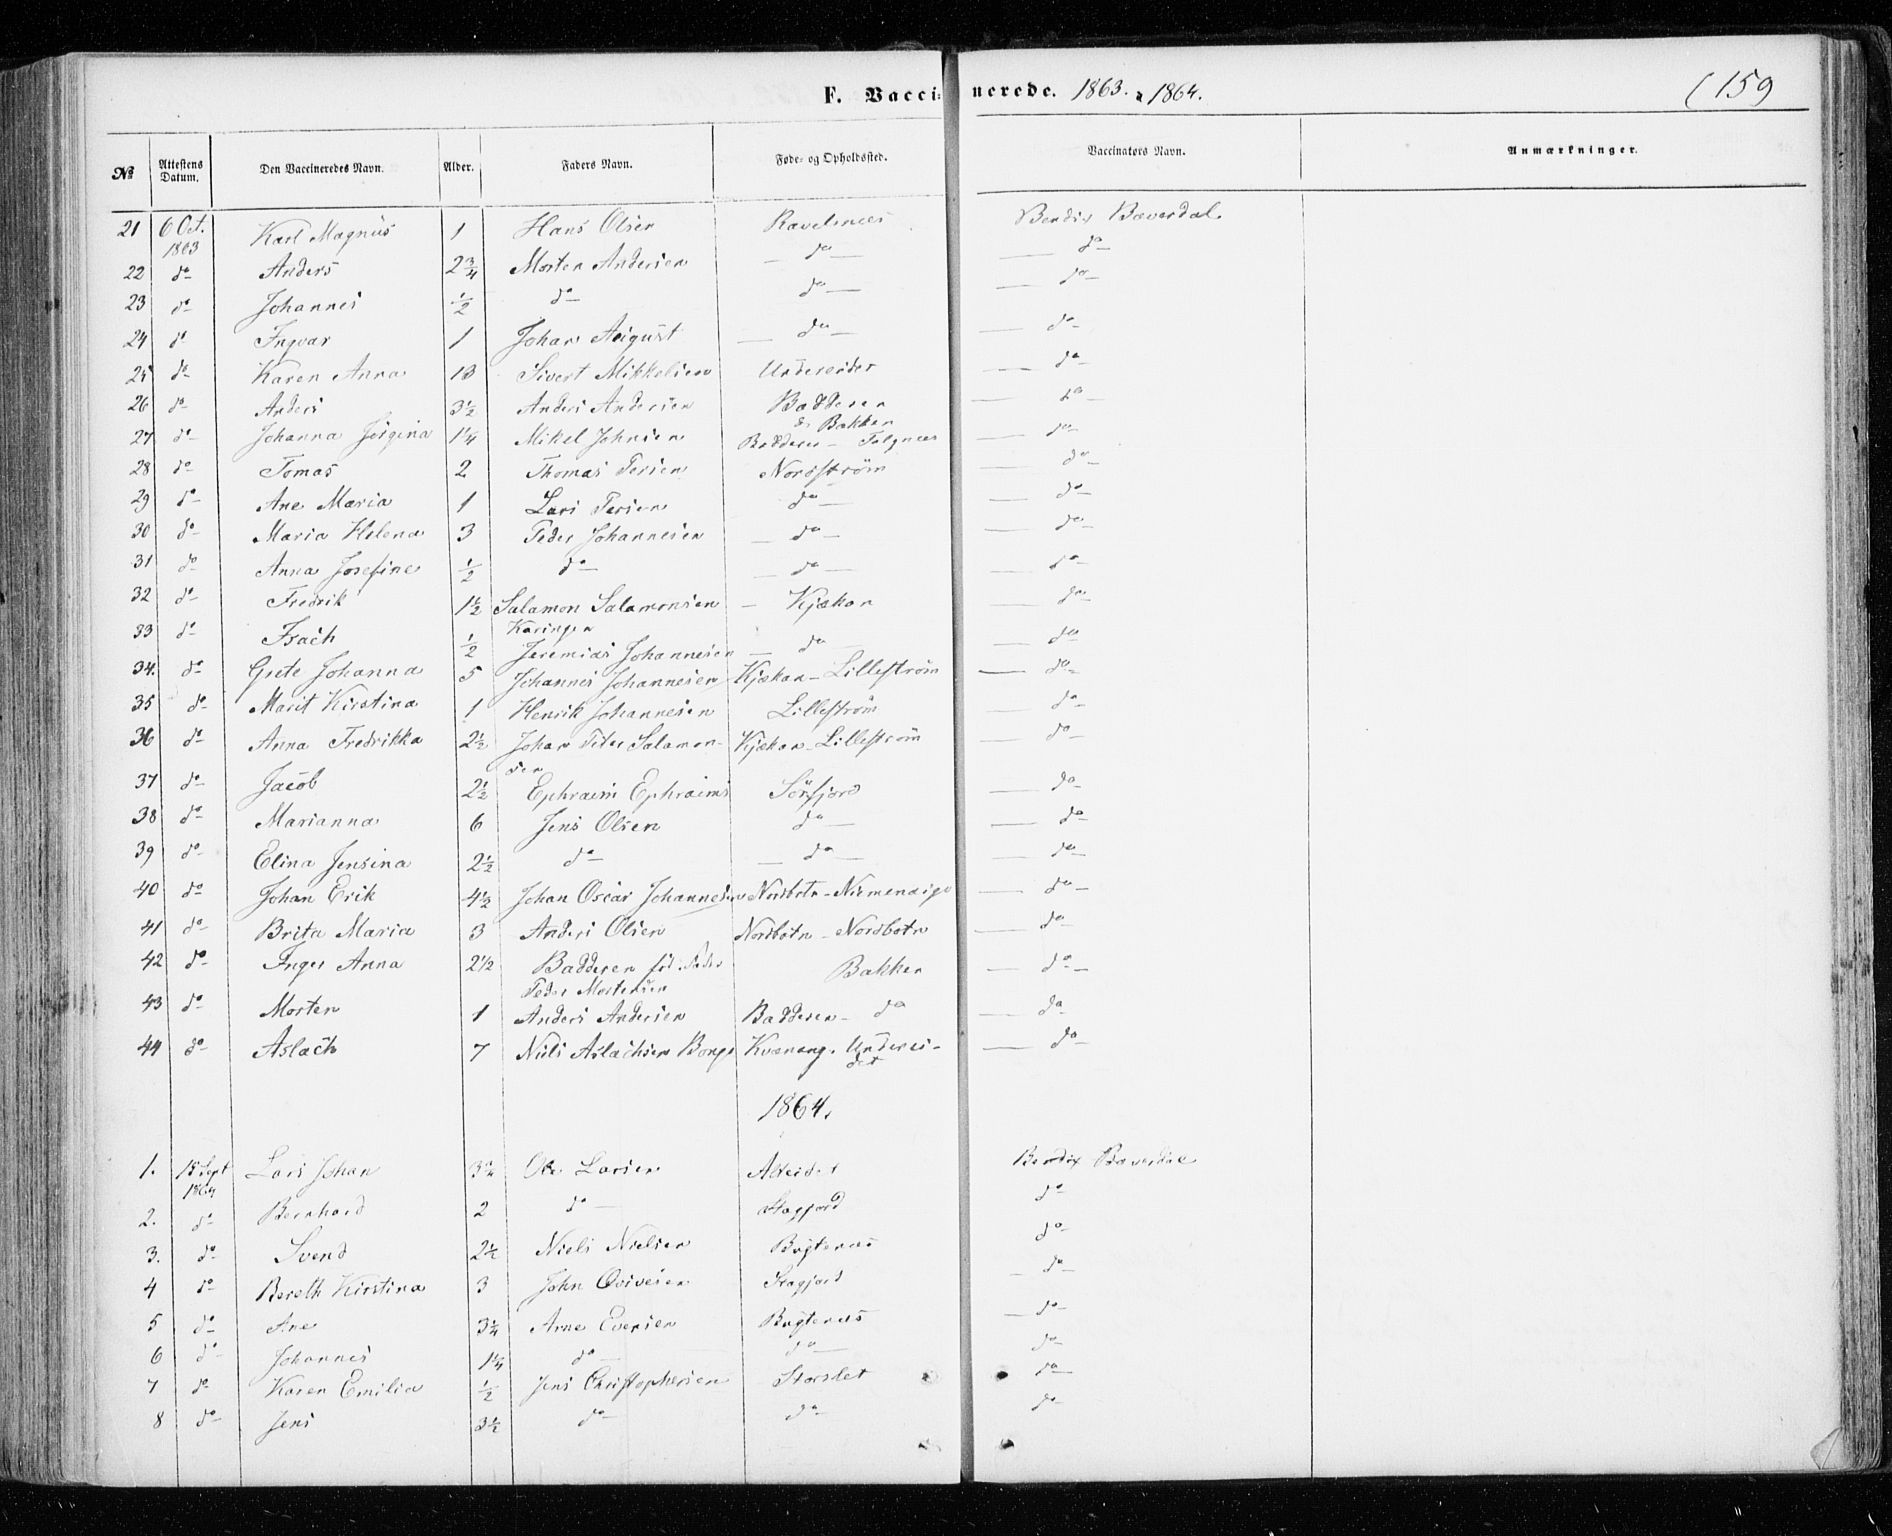 F. Vaccinerede. 1863. & 1864. 159
№ Attestens Datum. Den Vaccineredes Navn. Alder. Faders Navn. Føde- og Opholdssted. Vaccinators Navn. Anmærkninger.
21 6 Oct. 1863 Karl Magnus 1 Hans Olsen Ravelsnæs Bendix Bæverdal
22 do Anders 2 3/4 Morten Andersen do do
23 do Johannes 1/2 do do do
24 do Ingvar 1 Johan August do do
25 do Karen Anna 13 Sivert Mikkelsen Undereidet do
26 do Anders 3 1/2 Anders Andersen Badderen & Bakken do
27 do Johanna Jörgina 1 1/4 Mikel Johnsen Badderen - do
28 do Tomas 2 Thomas Persen Nordström do
29 do Ane Maria 1 Lars Persen do do
30 do Maria Helena 3 Peder Johannesen do do
31 do Anna Josefine 1/2 do do do
32 do Fredrik 1 1/2 Salamon Salamonsen Kjækan do
33 do Isach 1/2 Jeremias Johannesen do do
34. do Grete Johanna 5 Johannes Johannesen Kjækan - Lilleström do
35 do Marit Kirstina 1 Henrik Johannesen Lilleström do
36 do Anna Fredrikka 2 1/2 Johan Peter Salamonsen Kjækan - Lilleström do
37 do Jacob 2 1/2 Ephraim Ephraims Sörfjord do
38 do Marianna 6 Jens Olsen do do
39 do Elina Jensina 2 1/2 do do do
40 do Johan Erik 4 1/2 Johan Oscar Johannesen Nordbotn - do
41 do Brita Maria 3 Anders Olsen Nordbotn - Nordbotn do
42 do Inger Anna 2 1/2 Badderen Peder Mortensen Bakken do
43 do Morten 1 Anders Andersen Badderen - do do
44 do Aslach 7 Niels Aslachsen Kvænang. Undereidet do
1864.
1. 15 Sept 1864 Lars Johan 3 3/4 Ole Larsen Alteidet Bendix Bæverdal
2. do Bernhard 2 do Stagfjord do
3. do Svend 2 1/2 Niels Nielsen Bugtenæs do
4 do Bereth Kirstina 3 John do
5 do Ane 3 1/4 Arne Evensen Bugtenæs do
6 do Johannes 1 1/4 do do do
7 do Karen Emilia 1/2 Jens Christophersen Storslet do
8 do Jens 3 1/2 do do do